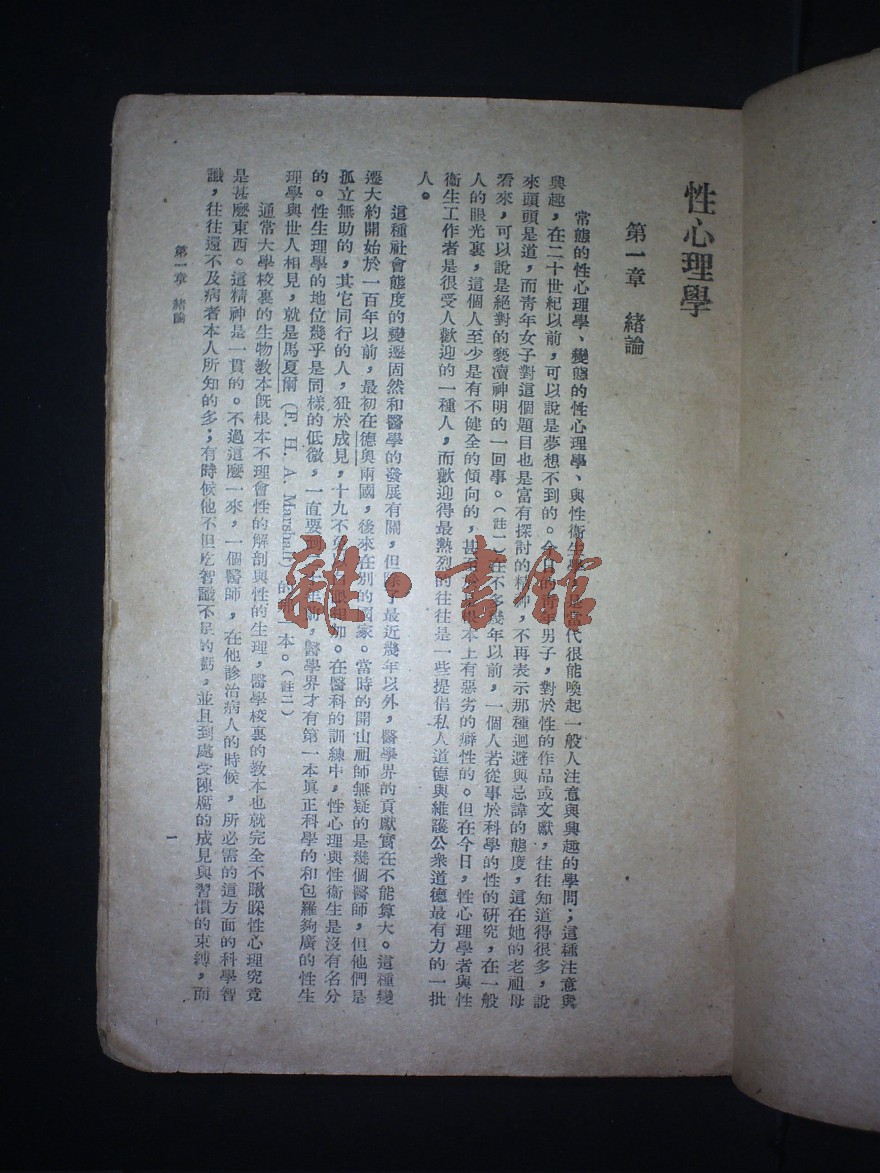 性心理學
第一章 緒論
常態的性心理學、變態的性心理學、與性衞生學是當代很能喚起一般人注意與興趣的學問；這種注意與
興趣，在二十世紀以前，可以說是夢想不到的。今日的青年男子，對於性的作品或文獻，往往知道得很多，說
來頭頭是道，而青年女子對這個題目也是富有探討的精神，不再表示那種迴避與忌諱的態度，這在她的老祖母
看來，可以說是絕對的褻瀆神明的一回事。（註一）在不多幾年以前，一個人若從事於科學的性的研究，在一般
人的眼光裏，這個人至少是有不健全的傾向的，甚本上有惡劣的癖性的。但在今日，性心理學者與性
衞生工作者是很受人歡迎的一種人，而歡迎得最熱烈的往往是一些提倡私人道德與維護公衆道德最有力的一批
人。
這種社會態度的變遷固然和醫學的發展有關，但除了最近幾年以外，醫學界的貢獻實在不能算大。這種變
遷大約開始於一百年以前，最初在德奧兩國，後來在別的國家。當時的開山祖師無疑的是幾個醫師，但他們是
孤立無助的，其它同行的人，狃於成見，十九不。在醫科的訓練中，性心理與性衞生是沒有名分
的。性生理學的地位幾乎是同樣的低微，一直要到年前，醫學界才有第一本眞正科學的和包羅夠廣的性生
理學與世人相見，就是馬夏爾（F. H. A. Marshall）的本。（註二）
通常大學校裏的生物教本旣根本不理會性的解剖與性的生理，醫學校裏的教本也就完全不瞅睬性心理究竟
是甚麽東西。這精神是一貫的。不過這麽一來，一個醫師，在他診治病人的時候，所必需的這方面的科學智
識，往往還不及病者本人所知的多；有時候他不但吃智識不足的虧，並且到處受陳腐的成見與習慣的束縛，而
第一章 緒論
一
雜·書館